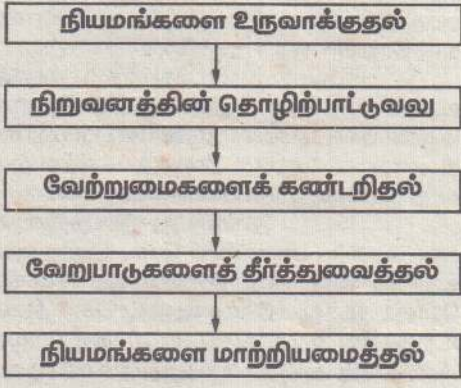 நியமங்களை உருவாக்குதல்
நிறுவனத்தின் தொழிற்பாட்டுவலு
வேற்றுமைகளைக் கண்டறிதல்
வேறுபாடுகளைத் தீர்த்துவைத்தல்
நியமங்களை மாற்றியமைத்தல்